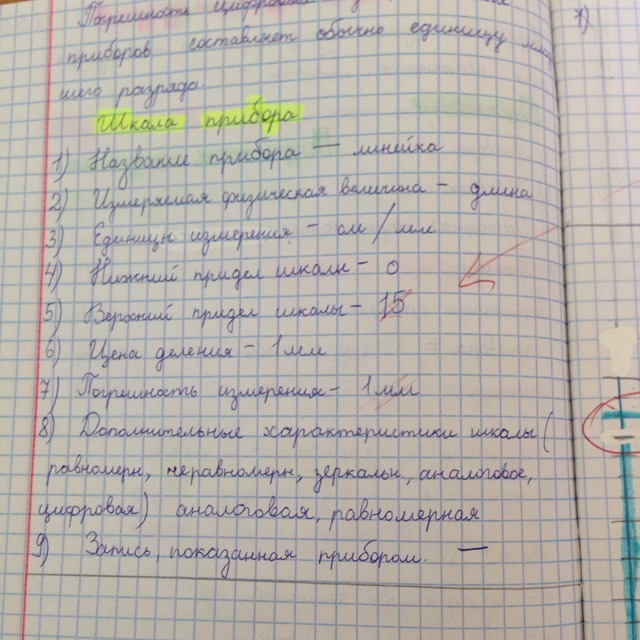 Погрешность цифровых
приборов составляет обычно единицу млад
шего разряда
Шкала прибора
1) Название прибора — линейка
2) Измеряемая физическая величина - длина
3) Единицы измерения - см / мм
4) Нижний придел шкалы - 0
5) Верхний придел шкалы - 15
6) Цена деления - 1 мм
7) Погрешность измерения - 1 мм
8) Дополнительные характеристики шкалы (
равномерн, неравномерн, зеркальн, аналоговое,
цифровая) аналоговая, равномерная
9) Запись, показанная прибором. —